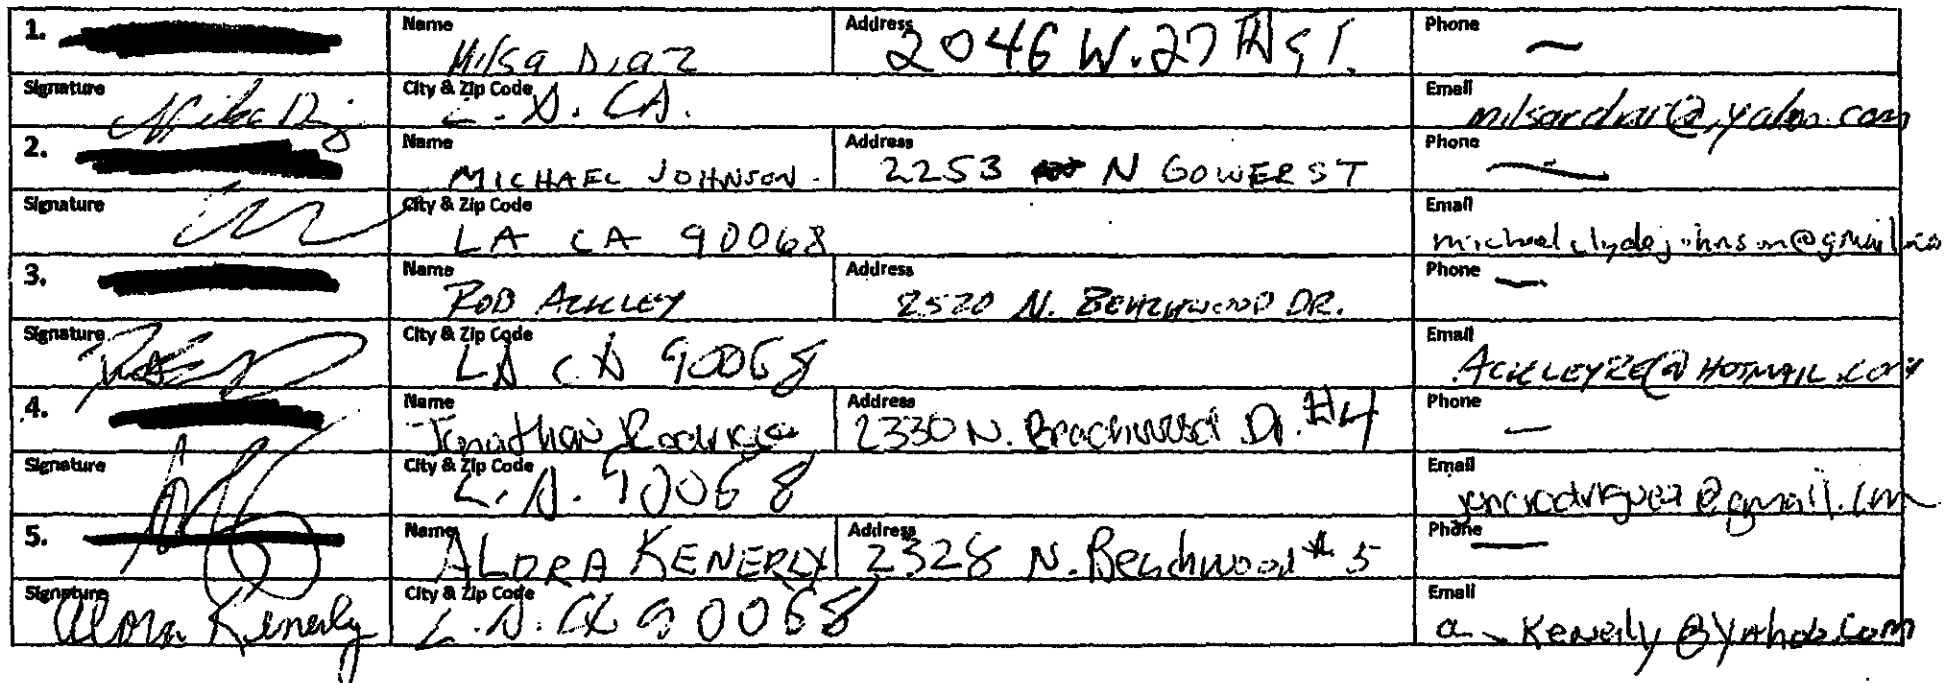 1. Name Milsa Diaz Address 2046 W. 27TH ST. Phone —
Signature City & Zip Code L.A. CA. Email @yahoo.com
2. Name MICHAEL JOHNSON Address 2253 N GOWER ST Phone —
Signature City & Zip Code LA CA 90068 Email michaelclydejohnson@gmail.co
3. Name ROB ACKLEY Address 2520 N. BEACHWOOD DR. Phone —
Signature City & Zip Code LA CA 90068 Email ACKLEYRE@HOTMAIL.COM
4. Name Jonathan Address 2330 N. Beachwood Dr. #4 Phone —
Signature City & Zip Code L.A. 90068 Email @gmail.com
5. Name ALORA KENERLY Address 2328 N. Beachwood #5 Phone —
Signature Alora Kenerly City & Zip Code L.A. CA 90068 Email a_Kenerly@Yahoo.com